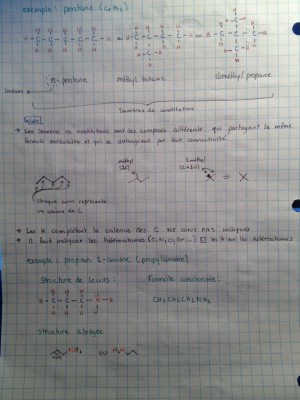 exemple: pentane (C₅H₁₂)
ou
ou
n-pentane
méthyl butane
diméthyl propane
linéaire
Isomères de constitution
Note:
→ Les isomères de constitution sont des composés différents qui partagent la même
formule moléculaire et qui se distinguent par leur connectivité.
méthyl
2 méthyl
=
chaque coin représente
un atome de C.
→ Les H complétant la valence des C NE SONT PAS indiqués
→ Il faut indiquer les hétéroatomes (O, N, Cl, Br ...) ET les H sur les hétéroatomes
exemple: propan-1-amine (propylamine)
Structure de Lewis:
Formule condensée:
CH₃CH₂CH₂NH₂
Structure abrégée
NH₂
ou
H₂N